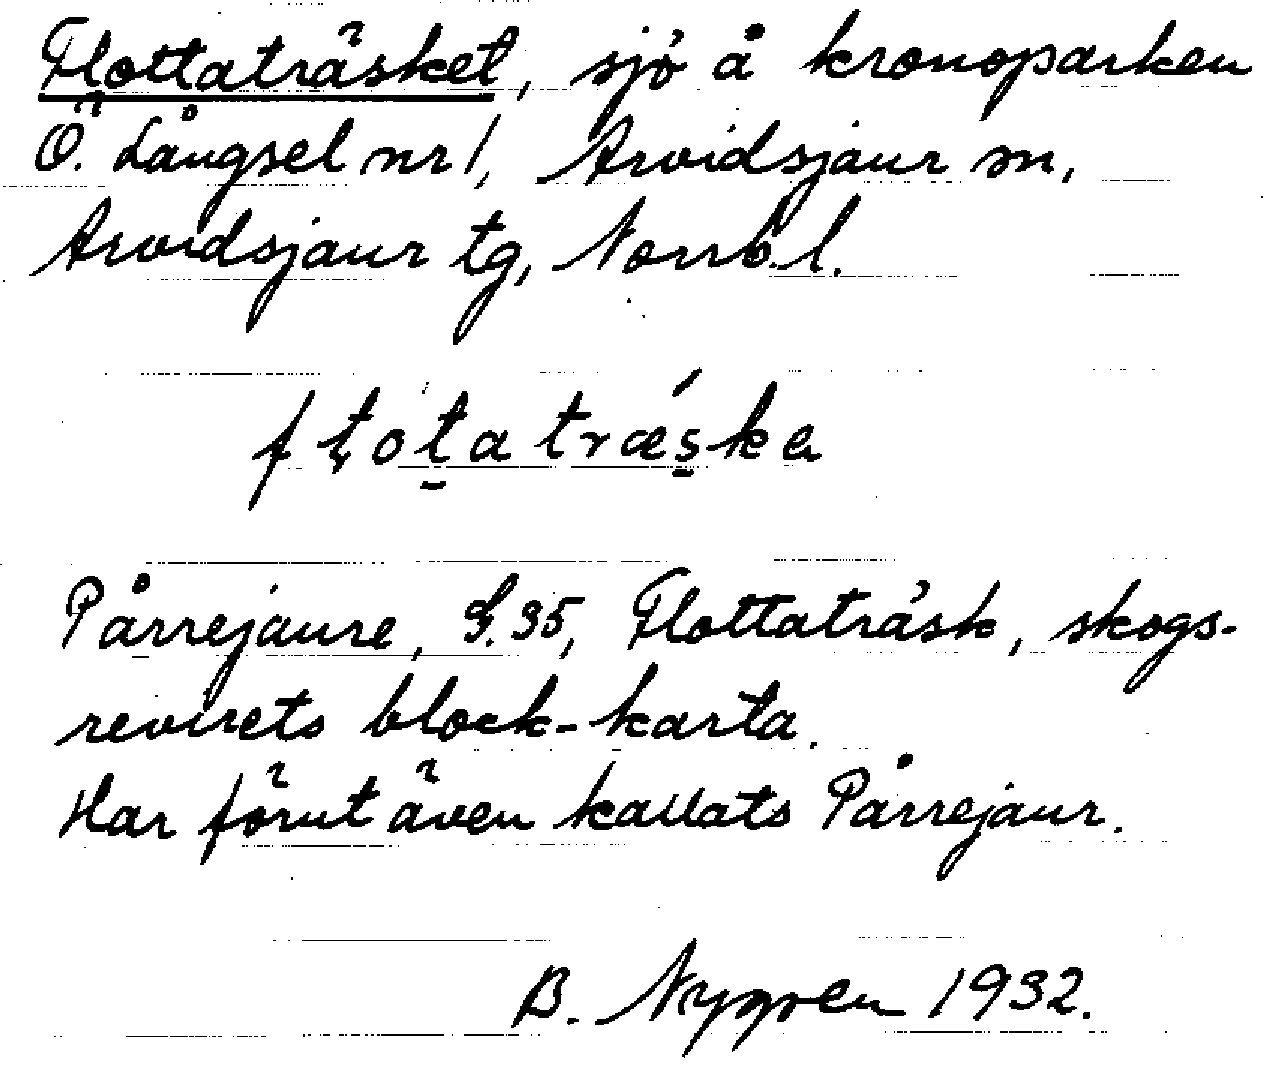 Flottaträsket, sjö å kronoparken
Ö. Långsel nr 1, Arvidsjaur sn,
Arvidsjaur tg, Norrb. l.
flo̱tatrǽs̱ka
Pårrejaure, G. 35, Flottaträsk, skogs-
revirets block-karta.
Har förut även kallats Pårrejaur.
B. Nygren 1932.